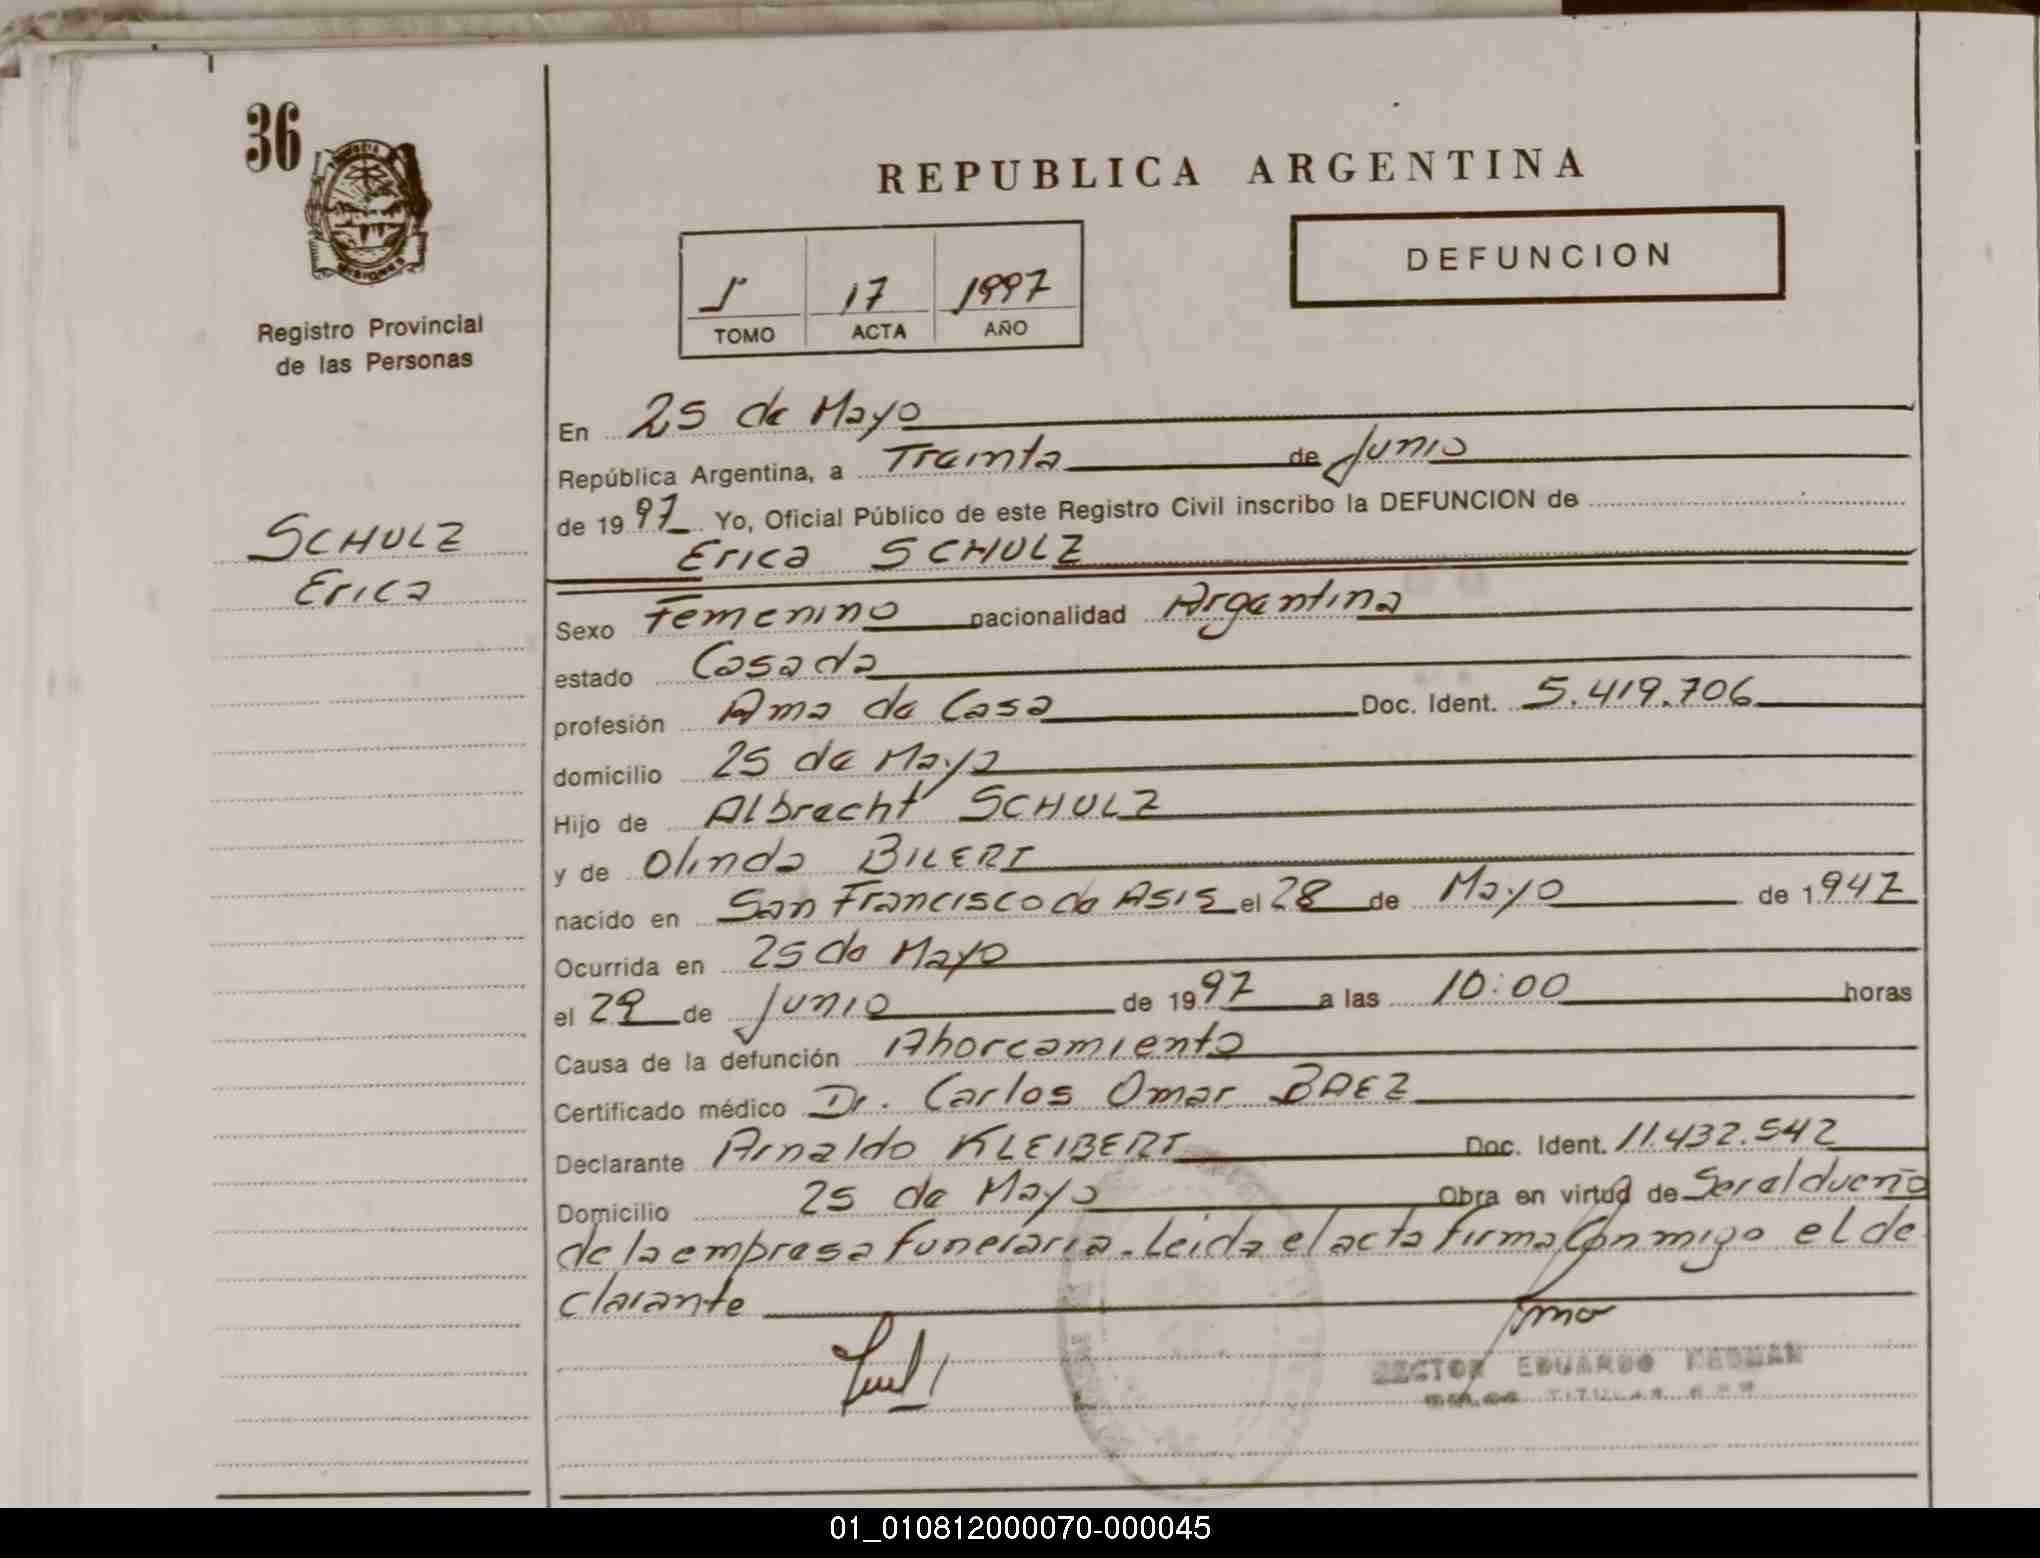 36
MISIONES
Registro Provincial
de las Personas
REPUBLICA ARGENTINA
DEFUNCION
1º 17 1997
TOMO ACTA AÑO
SCHULZ
Erica
En 25 de Mayo
República Argentina, a Treinta de Junio
de 1997 Yo, Oficial Público de este Registro Civil inscribo la DEFUNCION de
Erica SCHULZ
Sexo Femenino nacionalidad Argentina
estado Casada
profesión Ama de Casa Doc. Ident. 5.419.706
domicilio 25 de Mayo
Hijo de Albrecht SCHULZ
y de Olinda BILERT
nacido en San Francisco de Asis el 28 de Mayo de 1947
Ocurrida en 25 de Mayo
el 29 de Junio de 1997 a las 10:00 horas
Causa de la defunción Ahorcamiento
Certificado médico Dr. Carlos Omar BAEZ
Declarante Arnaldo KLEIBERT Doc. Ident. 11.432.542
Domicilio 25 de Mayo Obra en virtud de Ser el dueño
de la empresa funeraria. Leida el acta firma Conmigo el de
clarante
HECTOR EDUARDO
TITULAR
01_010812000070-000045